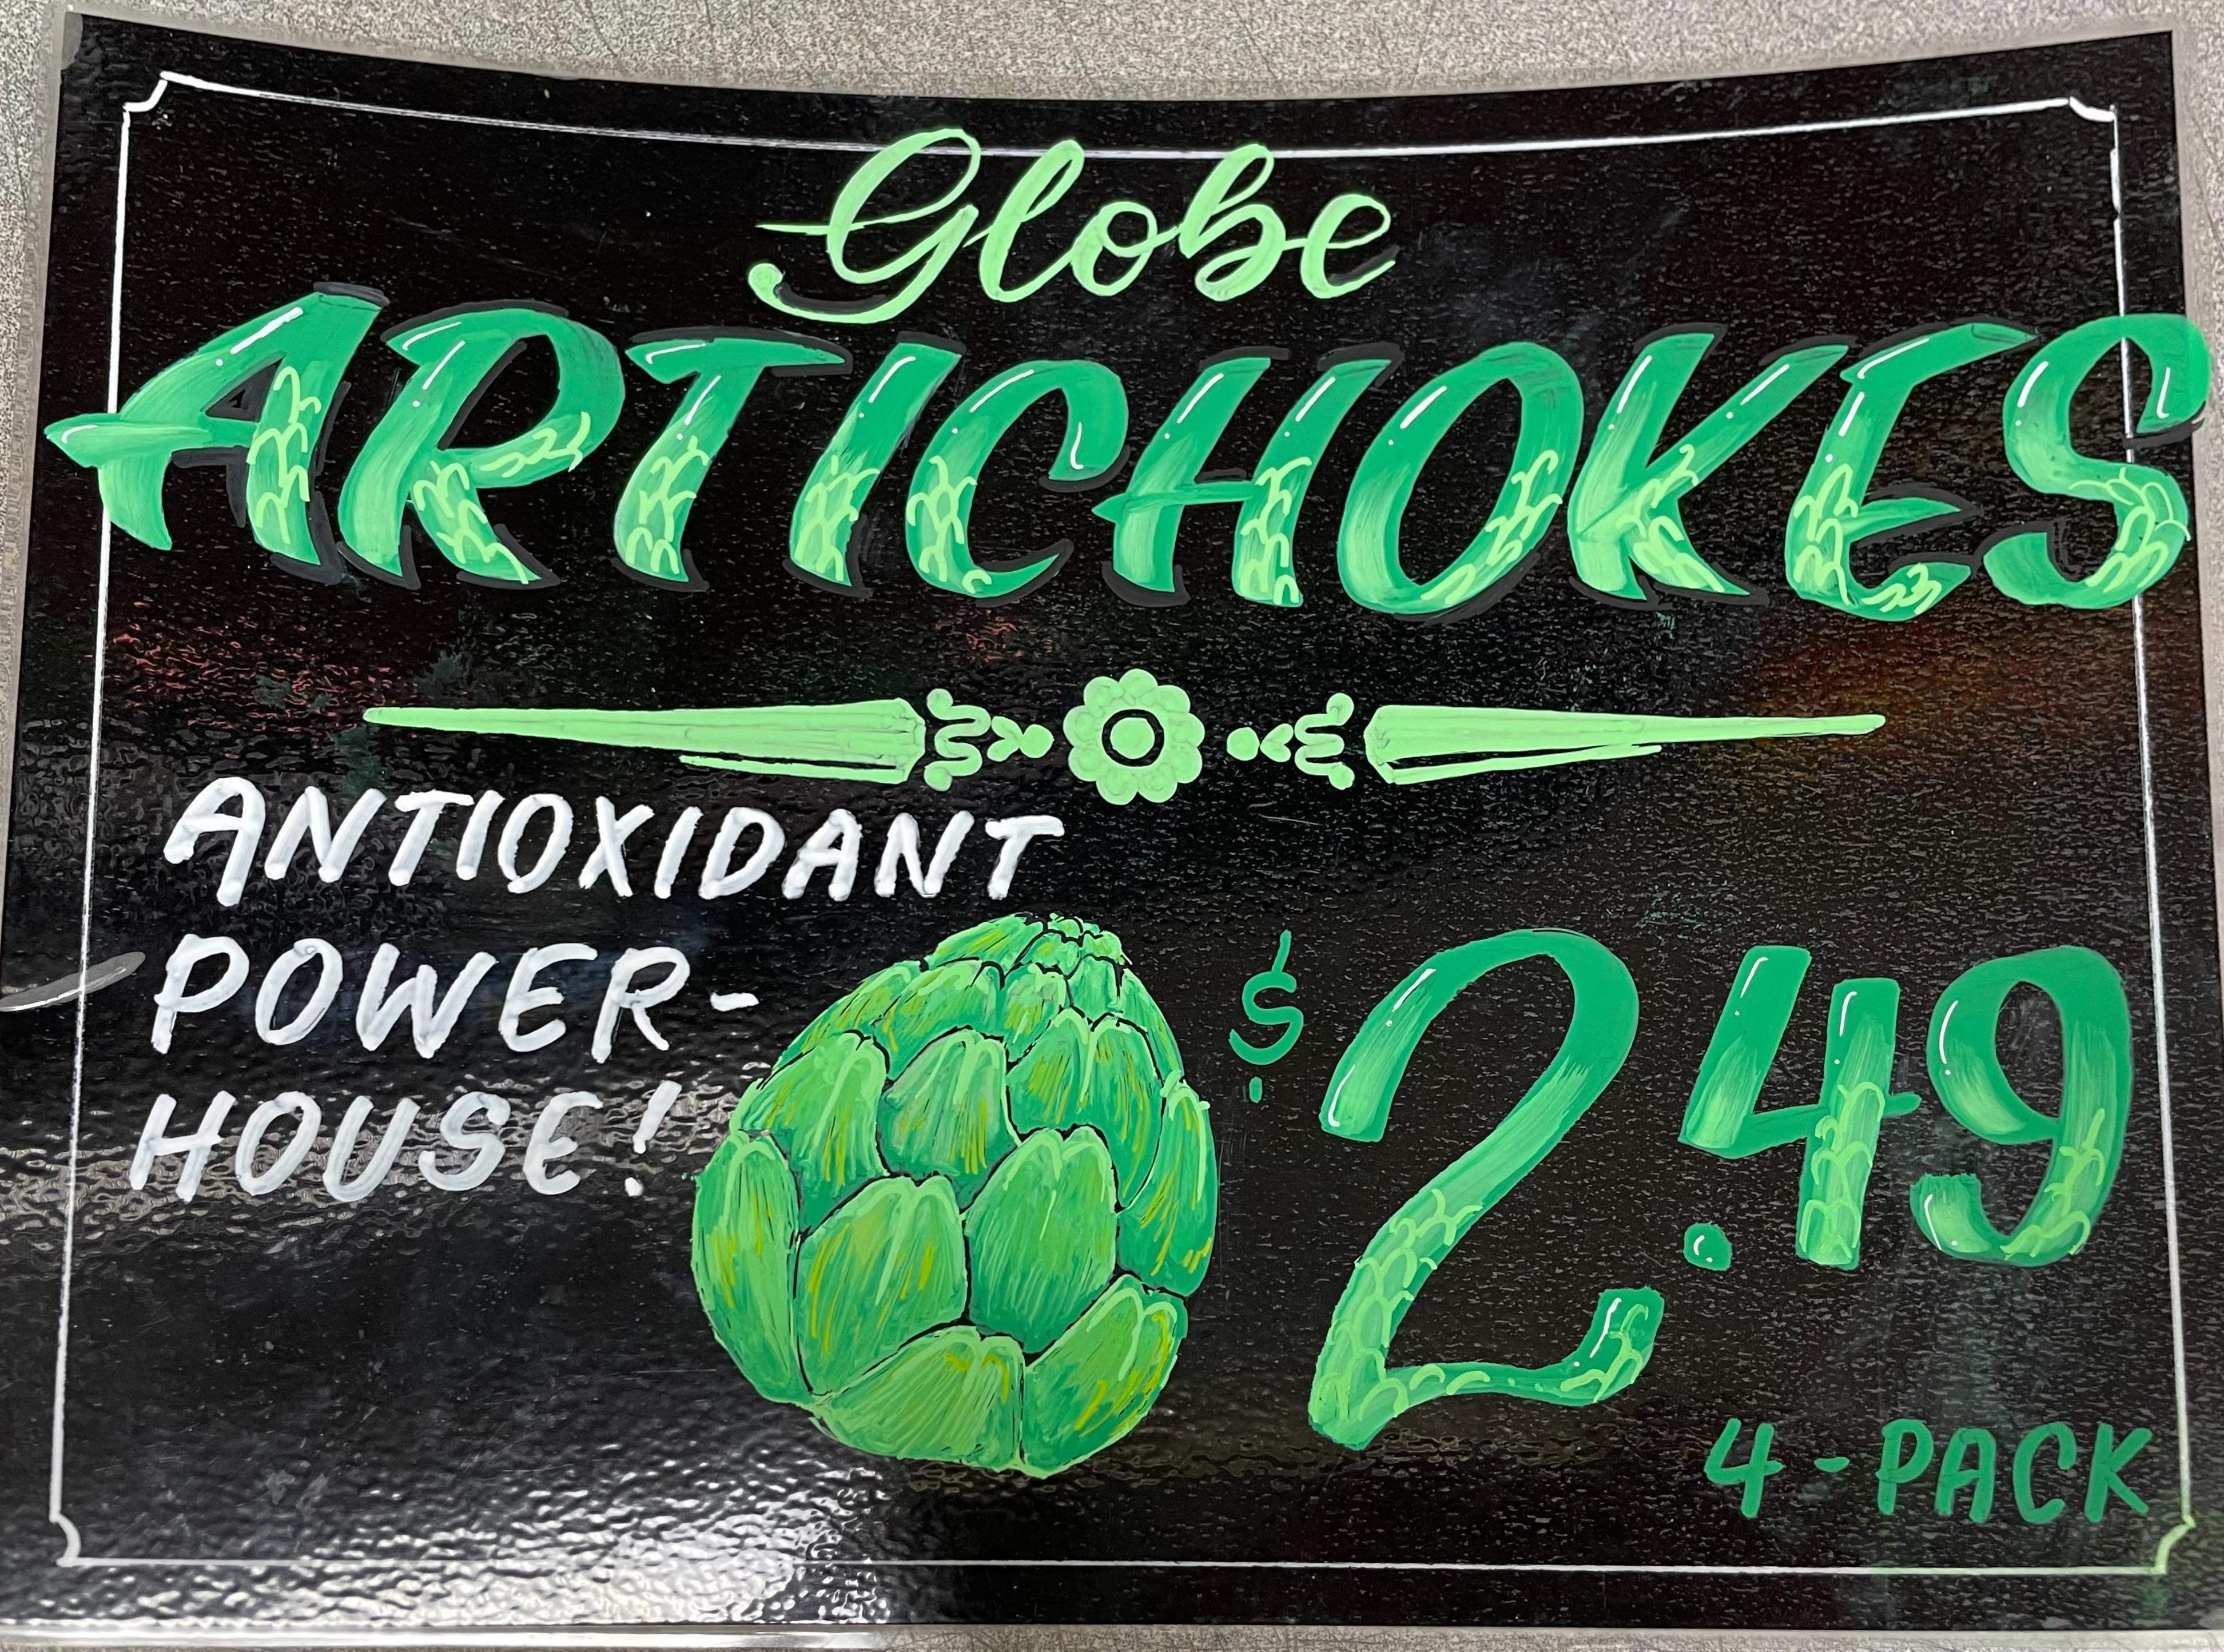 Globe
ARTICHOKES
ANTIOXIDANT
POWER-
HOUSE!
$2.49
4-PACK